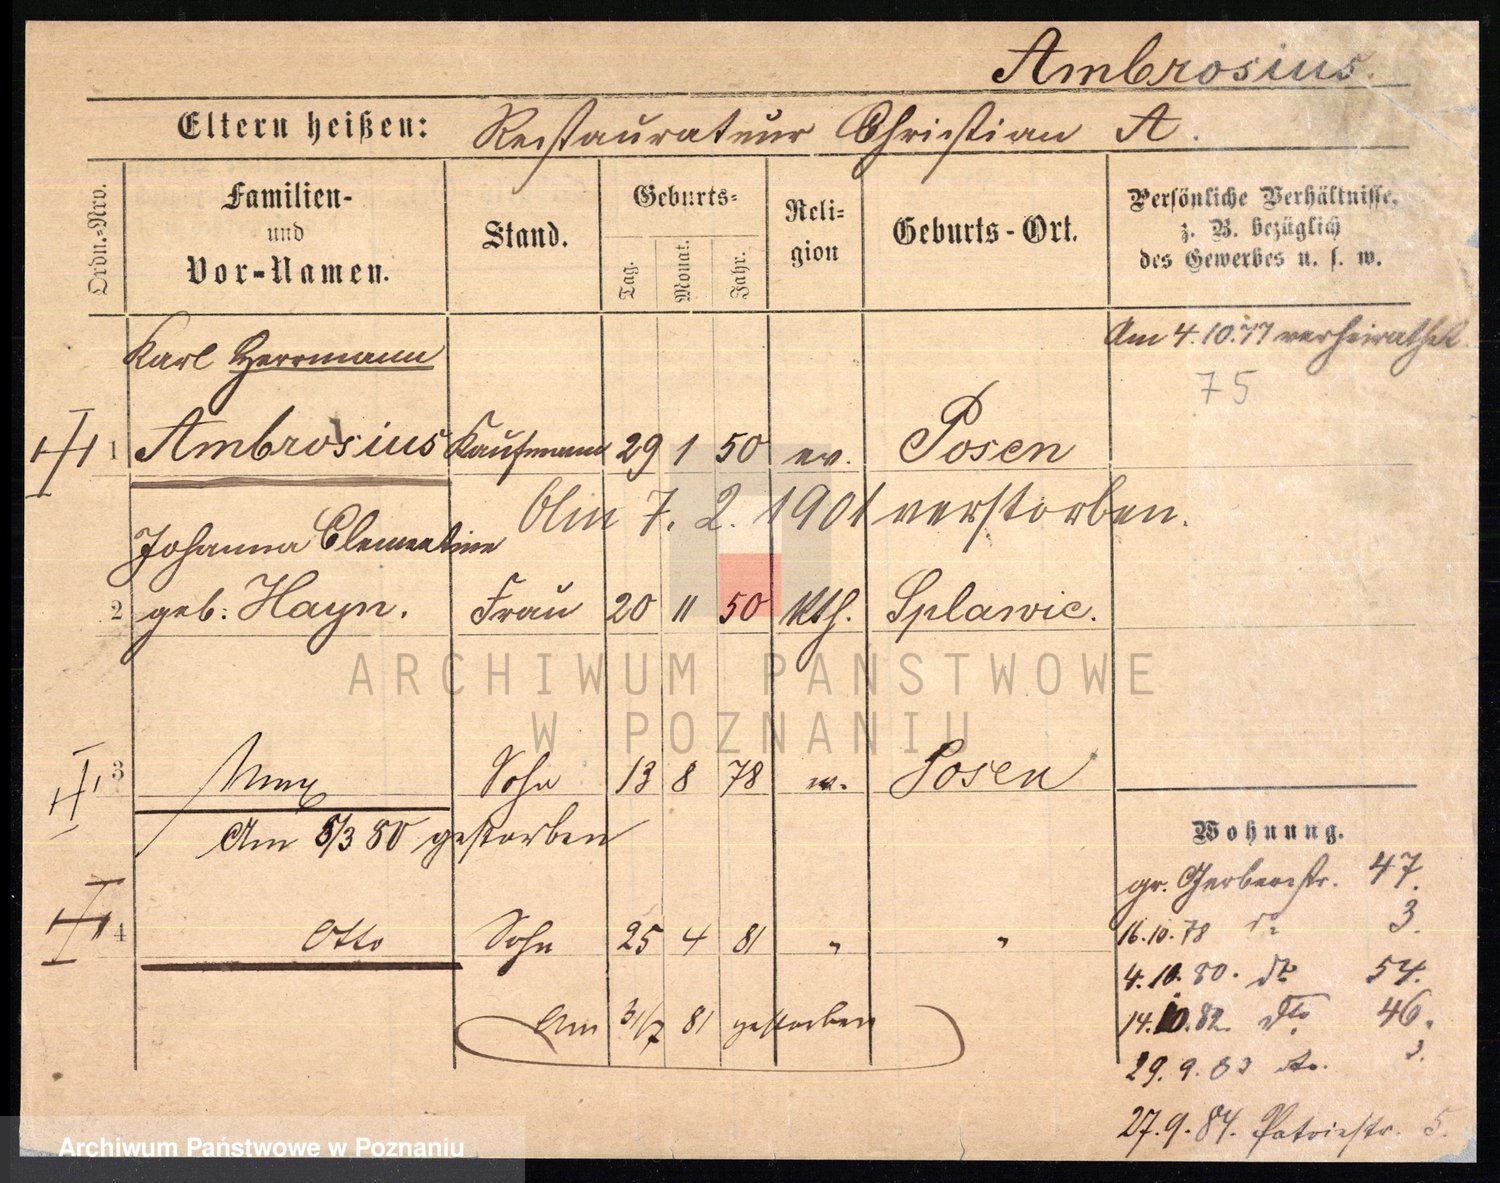 Ambrosius.
Eltern heißen: Restaurateur Christian A.
Ordn.-Nro.
Familien-
und
Vor-Namen.
Stand.
Geburts-
Tag.
Monat.
Jahr.
Reli-
gion
Geburts-Ort.
Persönliche Verhältnisse,
z. B. bezüglich
des Gewerbes u. s. w.
Karl Herrmann
Am 4.10.77 verheirathet
75
1 Ambrosius Kaufmann 29 1 50 ev. Posen
Am 7. 2. 1901 verstorben.
Johanna Clementine
2 geb. Hayn. Frau 20 11 50 kth. Splawie.
ARCHIWUM PAŃSTWOWE
W POZNANIU
3 Max Sohn 13 8 78 ev. Posen
Am 5/3 80 gestorben
Wohnung.
gr. Gerberstr. 47.
16.10.78 do 3.
4 Otto Sohn 25 4 81 " "
4.10.80. do 54.
14.10.82. dto 46.
Am 31/7 81 gestorben
29.9.83 do. 3.
27.9.84. 5.
Archiwum Państwowe w Poznaniu